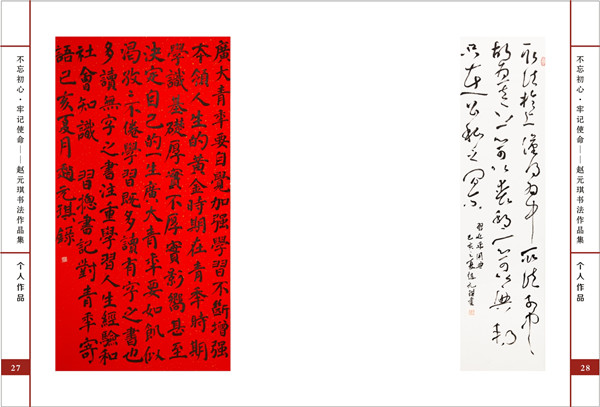 不忘初心·牢记使命——赵元琪书法作品集
个人作品
27
廣大青年要自覺加强學習不斷增强
本領人生的黄金時期在青年時期
學識基礎厚實不厚實影響甚至
決定自己的一生廣大青年要如飢似
渴孜孜不倦學習既多讀有字之書也
多讀無字之書注重學習人生經驗和
社會知識 習總書記對青年寄
語己亥夏月趙元琪錄
取法於上僅得為中取法於中
故為其下一心可以喪邦一心可以興邦
只在公私之間尔
習近平用典
己亥之夏趙元琪書
不忘初心·牢记使命——赵元琪书法作品集
个人作品
28